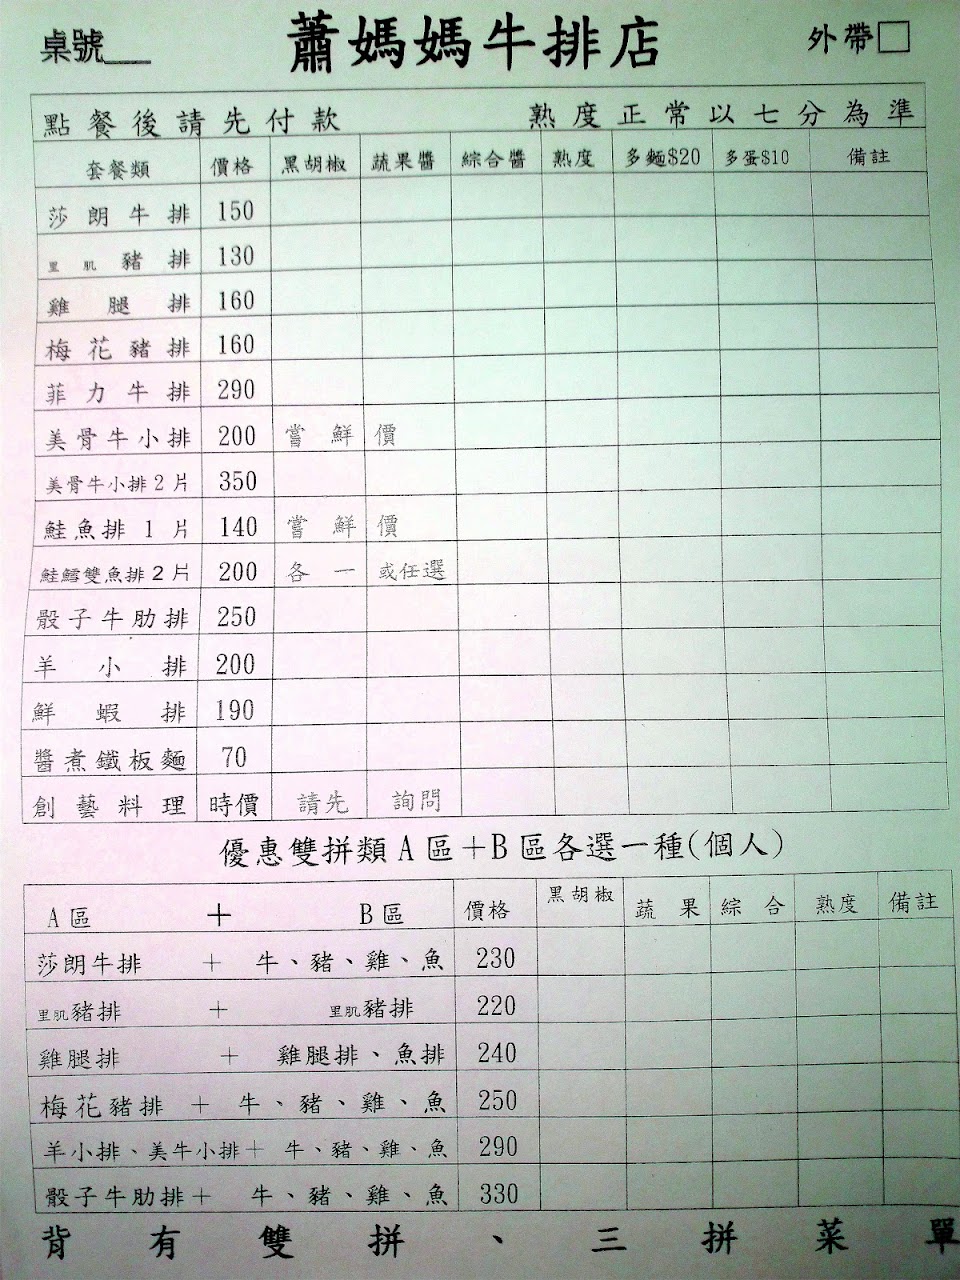 桌號___ 蕭媽媽牛排店 外帶□
點餐後請先付款 熟度正常以七分為準
套餐類 價格 黑胡椒 蔬果醬 綜合醬 熟度 多麵$20 多蛋$10 備註
莎朗牛排 150
里肌豬排 130
雞腿排 160
梅花豬排 160
菲力牛排 290
美骨牛小排 200 嘗鮮價
美骨牛小排2片 350
鮭魚排1片 140 嘗鮮價
鮭鱈雙魚排2片 200 各一或任選
骰子牛肋排 250
羊小排 200
鮮蝦排 190
醬煮鐵板麵 70
創藝料理 時價 請先詢問
優惠雙拼類A區+B區各選一種(個人)
A區 + B區 價格 黑胡椒 蔬果 綜合 熟度 備註
莎朗牛排 + 牛、豬、雞、魚 230
里肌豬排 + 里肌豬排 220
雞腿排 + 雞腿排、魚排 240
梅花豬排 + 牛、豬、雞、魚 250
羊小排、美牛小排+ 牛、豬、雞、魚 290
骰子牛肋排+ 牛、豬、雞、魚 330
背有雙拼、三拼菜單